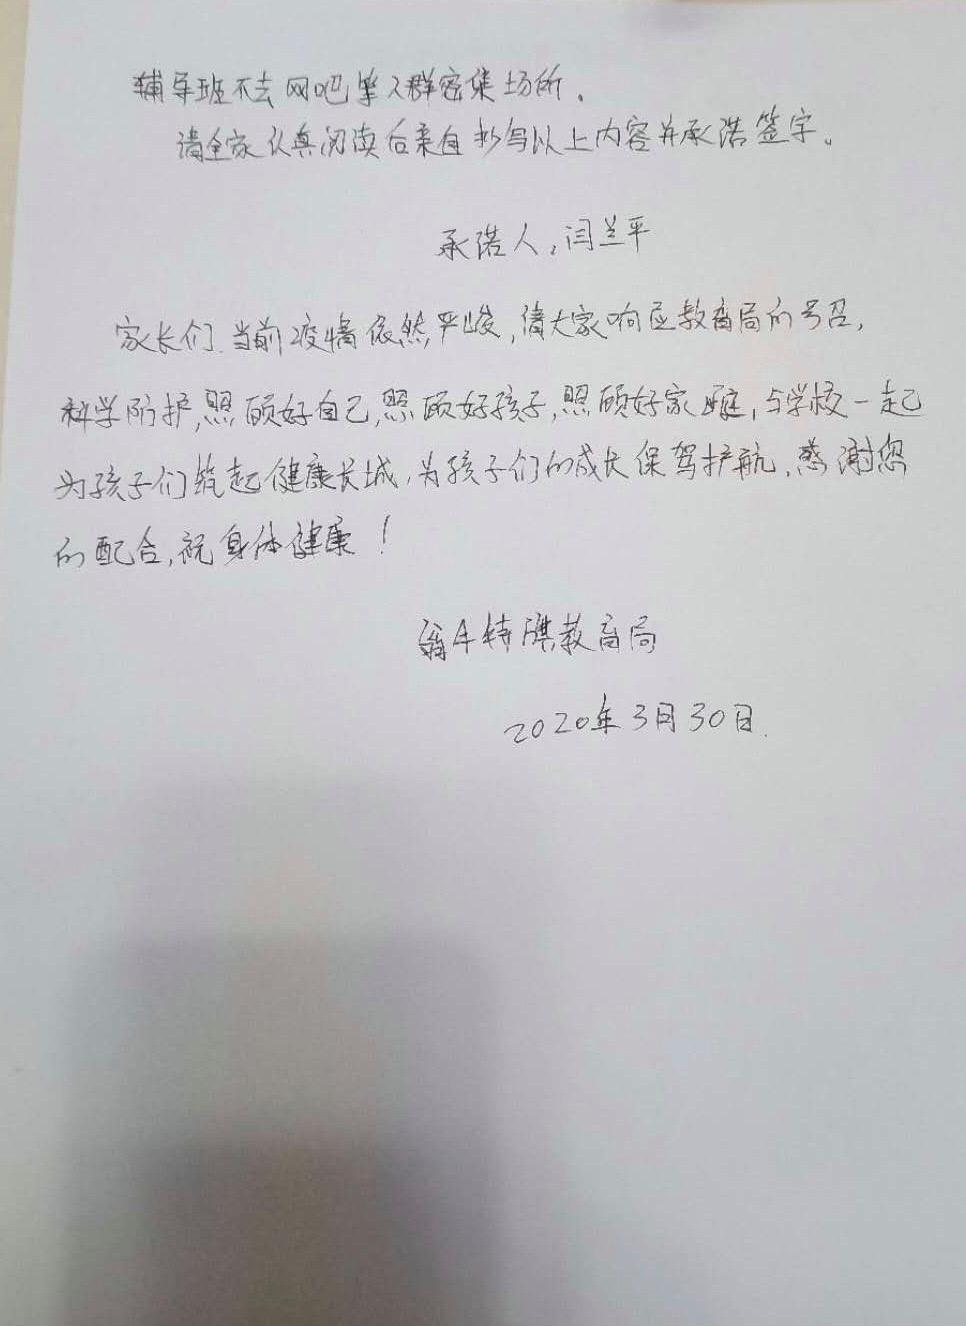 辅导班不去网吧等人群密集场所.
请全家认真阅读后亲自抄写以上内容并承诺签字。
承诺人,闫兰平
家长们.当前疫情依然严峻,请大家响应教育局的号召,
科学防护,照顾好自己,照顾好孩子,照顾好家庭,与学校一起
为孩子们筑起健康长城,为孩子们的成长保驾护航,感谢您
的配合,祝身体健康!
翁牛特旗教育局
2020年3月30日.